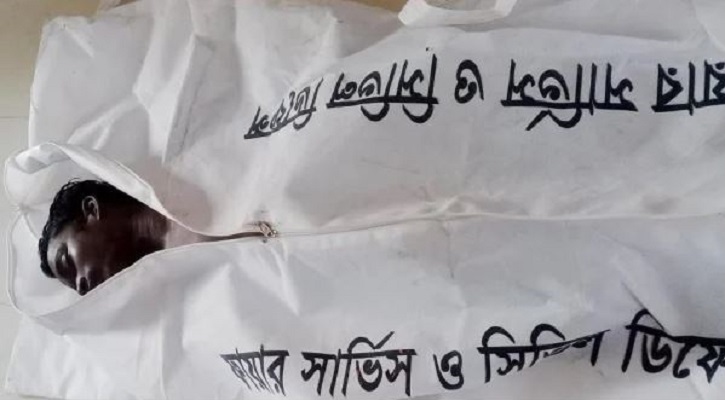 য়ার সার্ভিস ও সিভিল ডিফেন্স
ফায়ার সার্ভিস ও সিভিল ডিফে